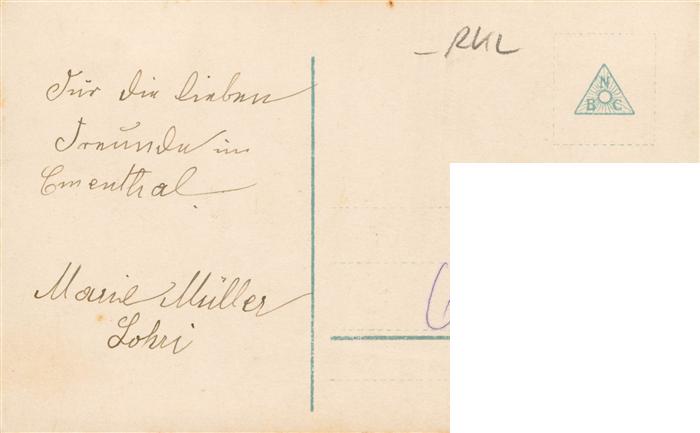 RKL
N
B C
Für die lieben
Freunde im
Ementhal
Marie Müller
Lohri